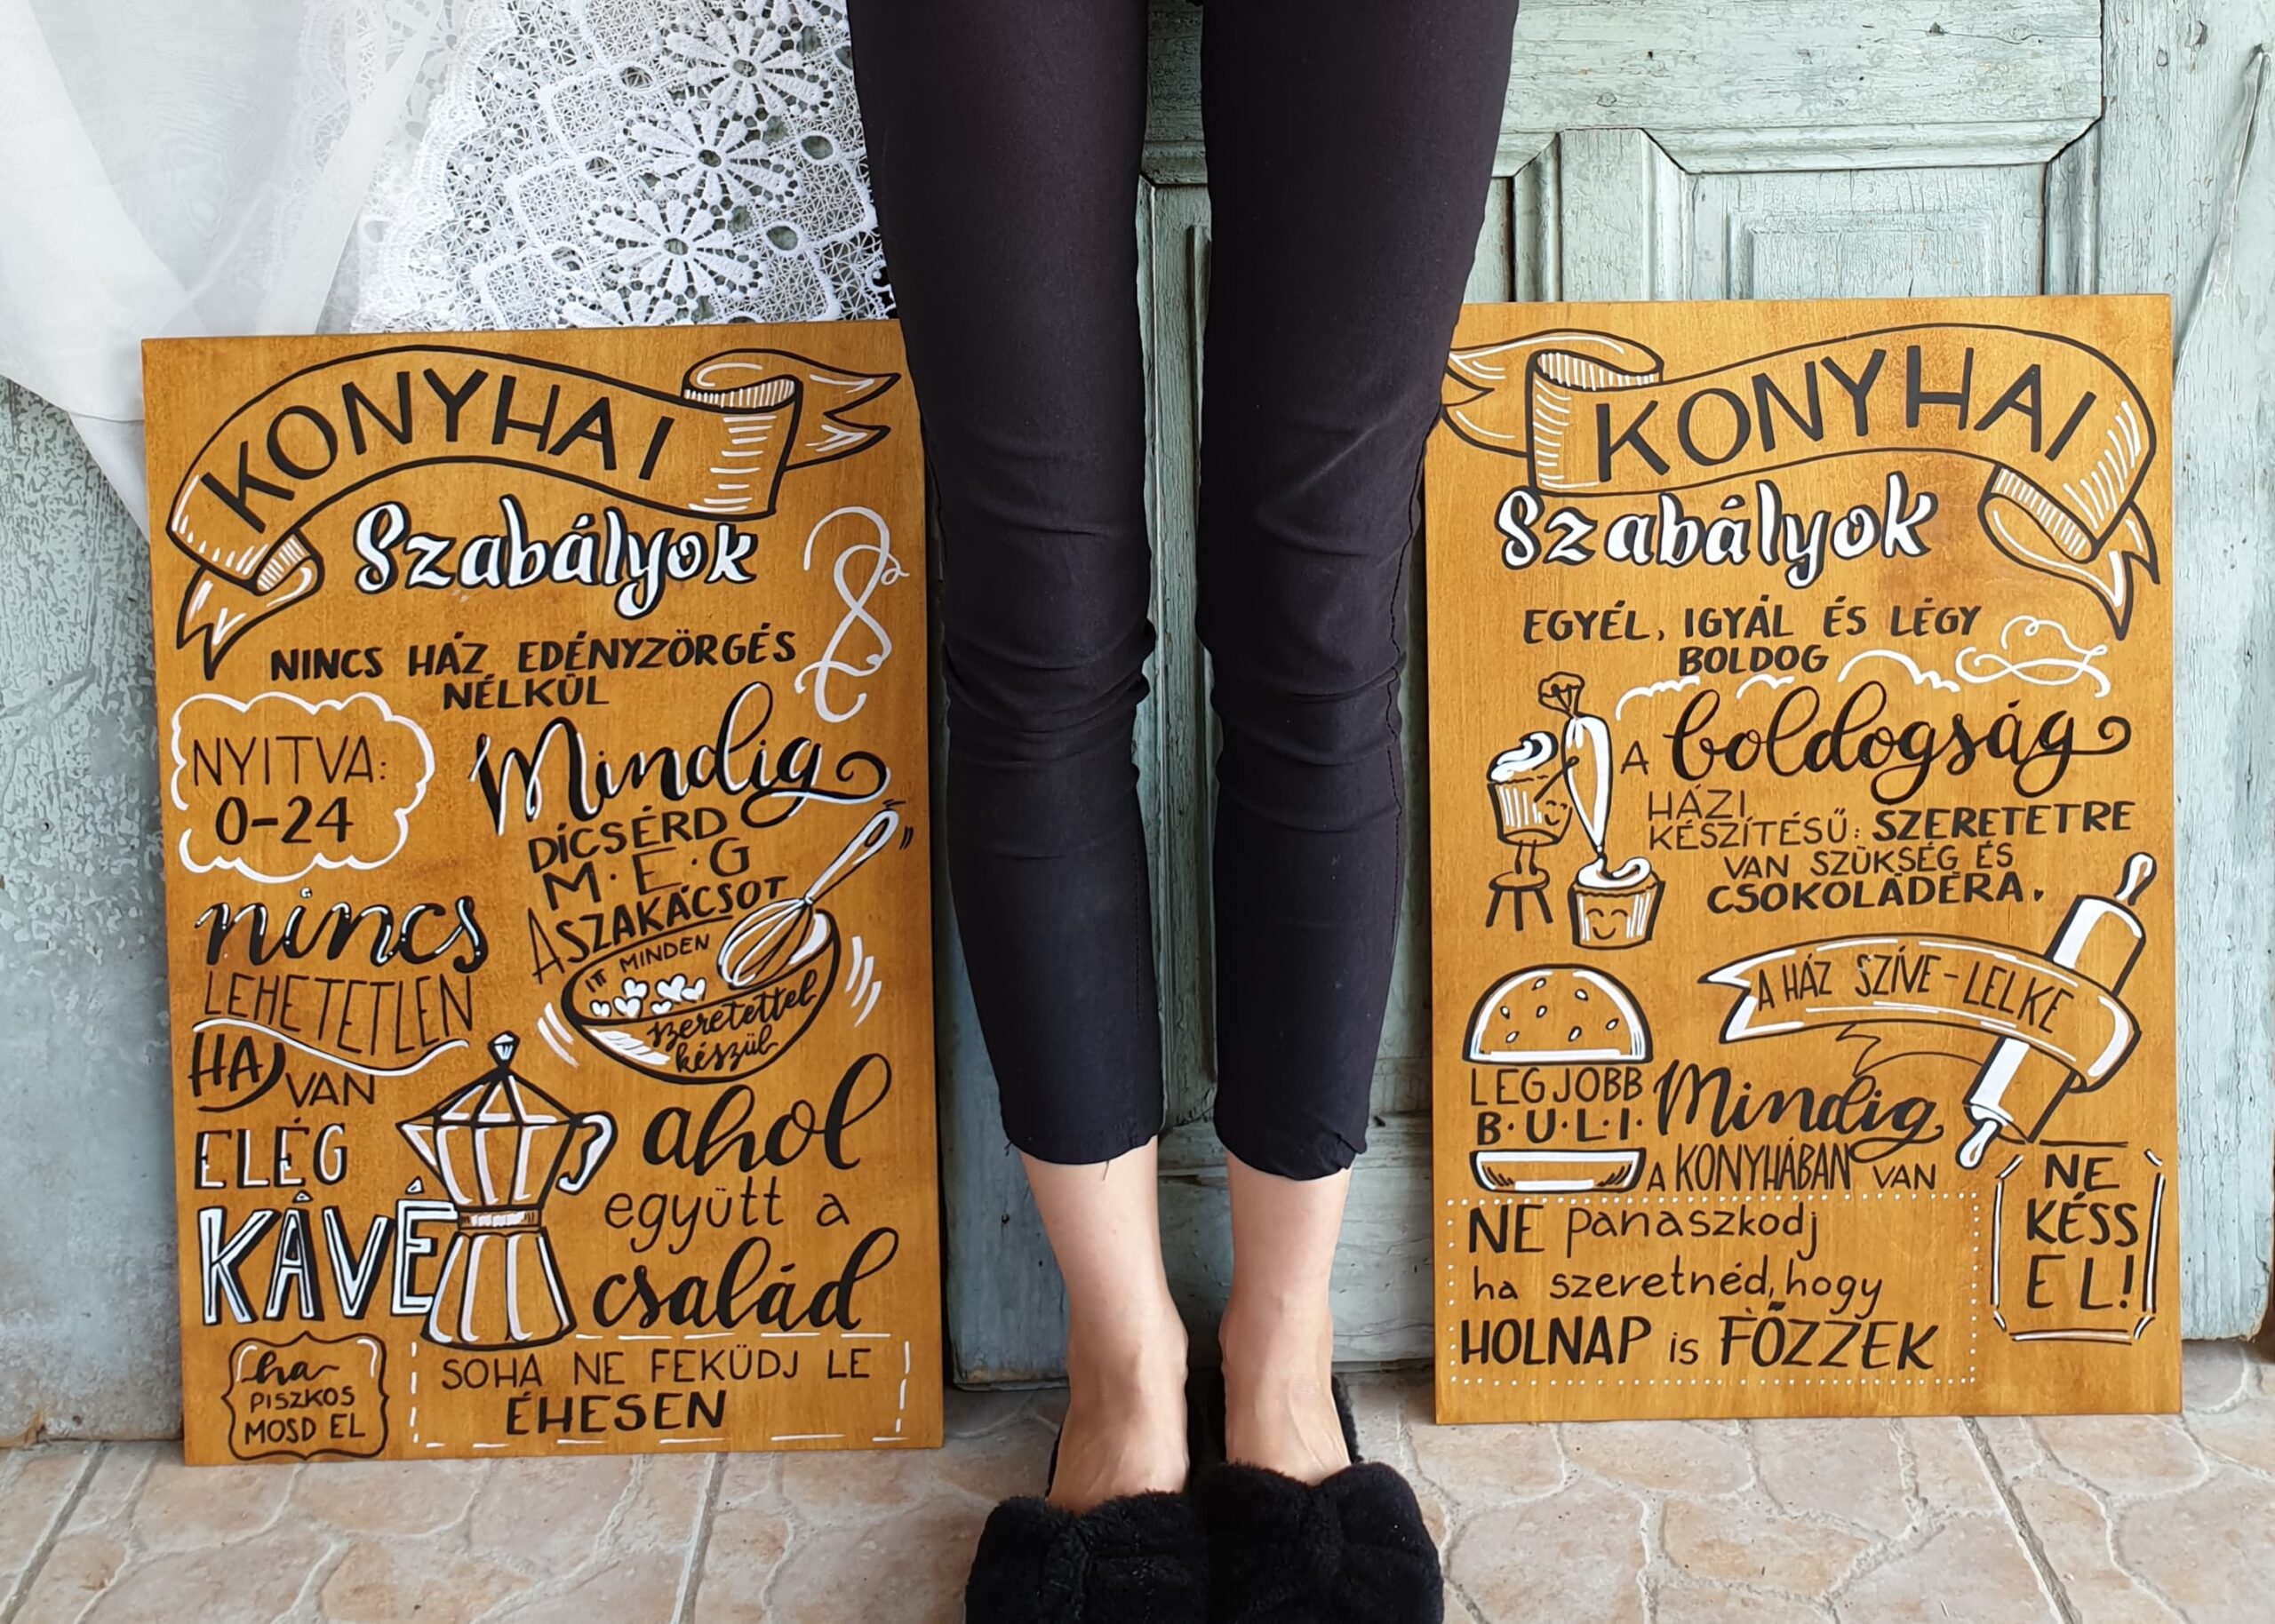 KONYHAI
Szabályok
NINCS HÁZ EDÉNYZÖRGÉS
NÉLKÜL
NYITVA:
0-24
Mindig
DÍCSÉRD
M·E·G
A SZAKÁCSOT
ITT MINDEN
szeretettel
készül
nincs
LEHETETLEN
HA VAN
ELÉG
KÁVÉ
ahol
együtt a
család
ha
PISZKOS
MOSD EL
SOHA NE FEKÜDJ LE
ÉHESEN
KONYHAI
Szabályok
EGYÉL, IGYÁL ÉS LÉGY
BOLDOG
A boldogság
HÁZI
KÉSZÍTÉSŰ: SZERETETRE
VAN SZÜKSÉG ÉS
CSOKOLÁDÉRA.
A HÁZ SZÍVE-LELKE
LEGJOBB
B·U·L·I· Mindig
A KONYHÁBAN VAN
NE panaszkodj
ha szeretnéd, hogy
HOLNAP is FŐZZEK
NE
KÉSS
EL!